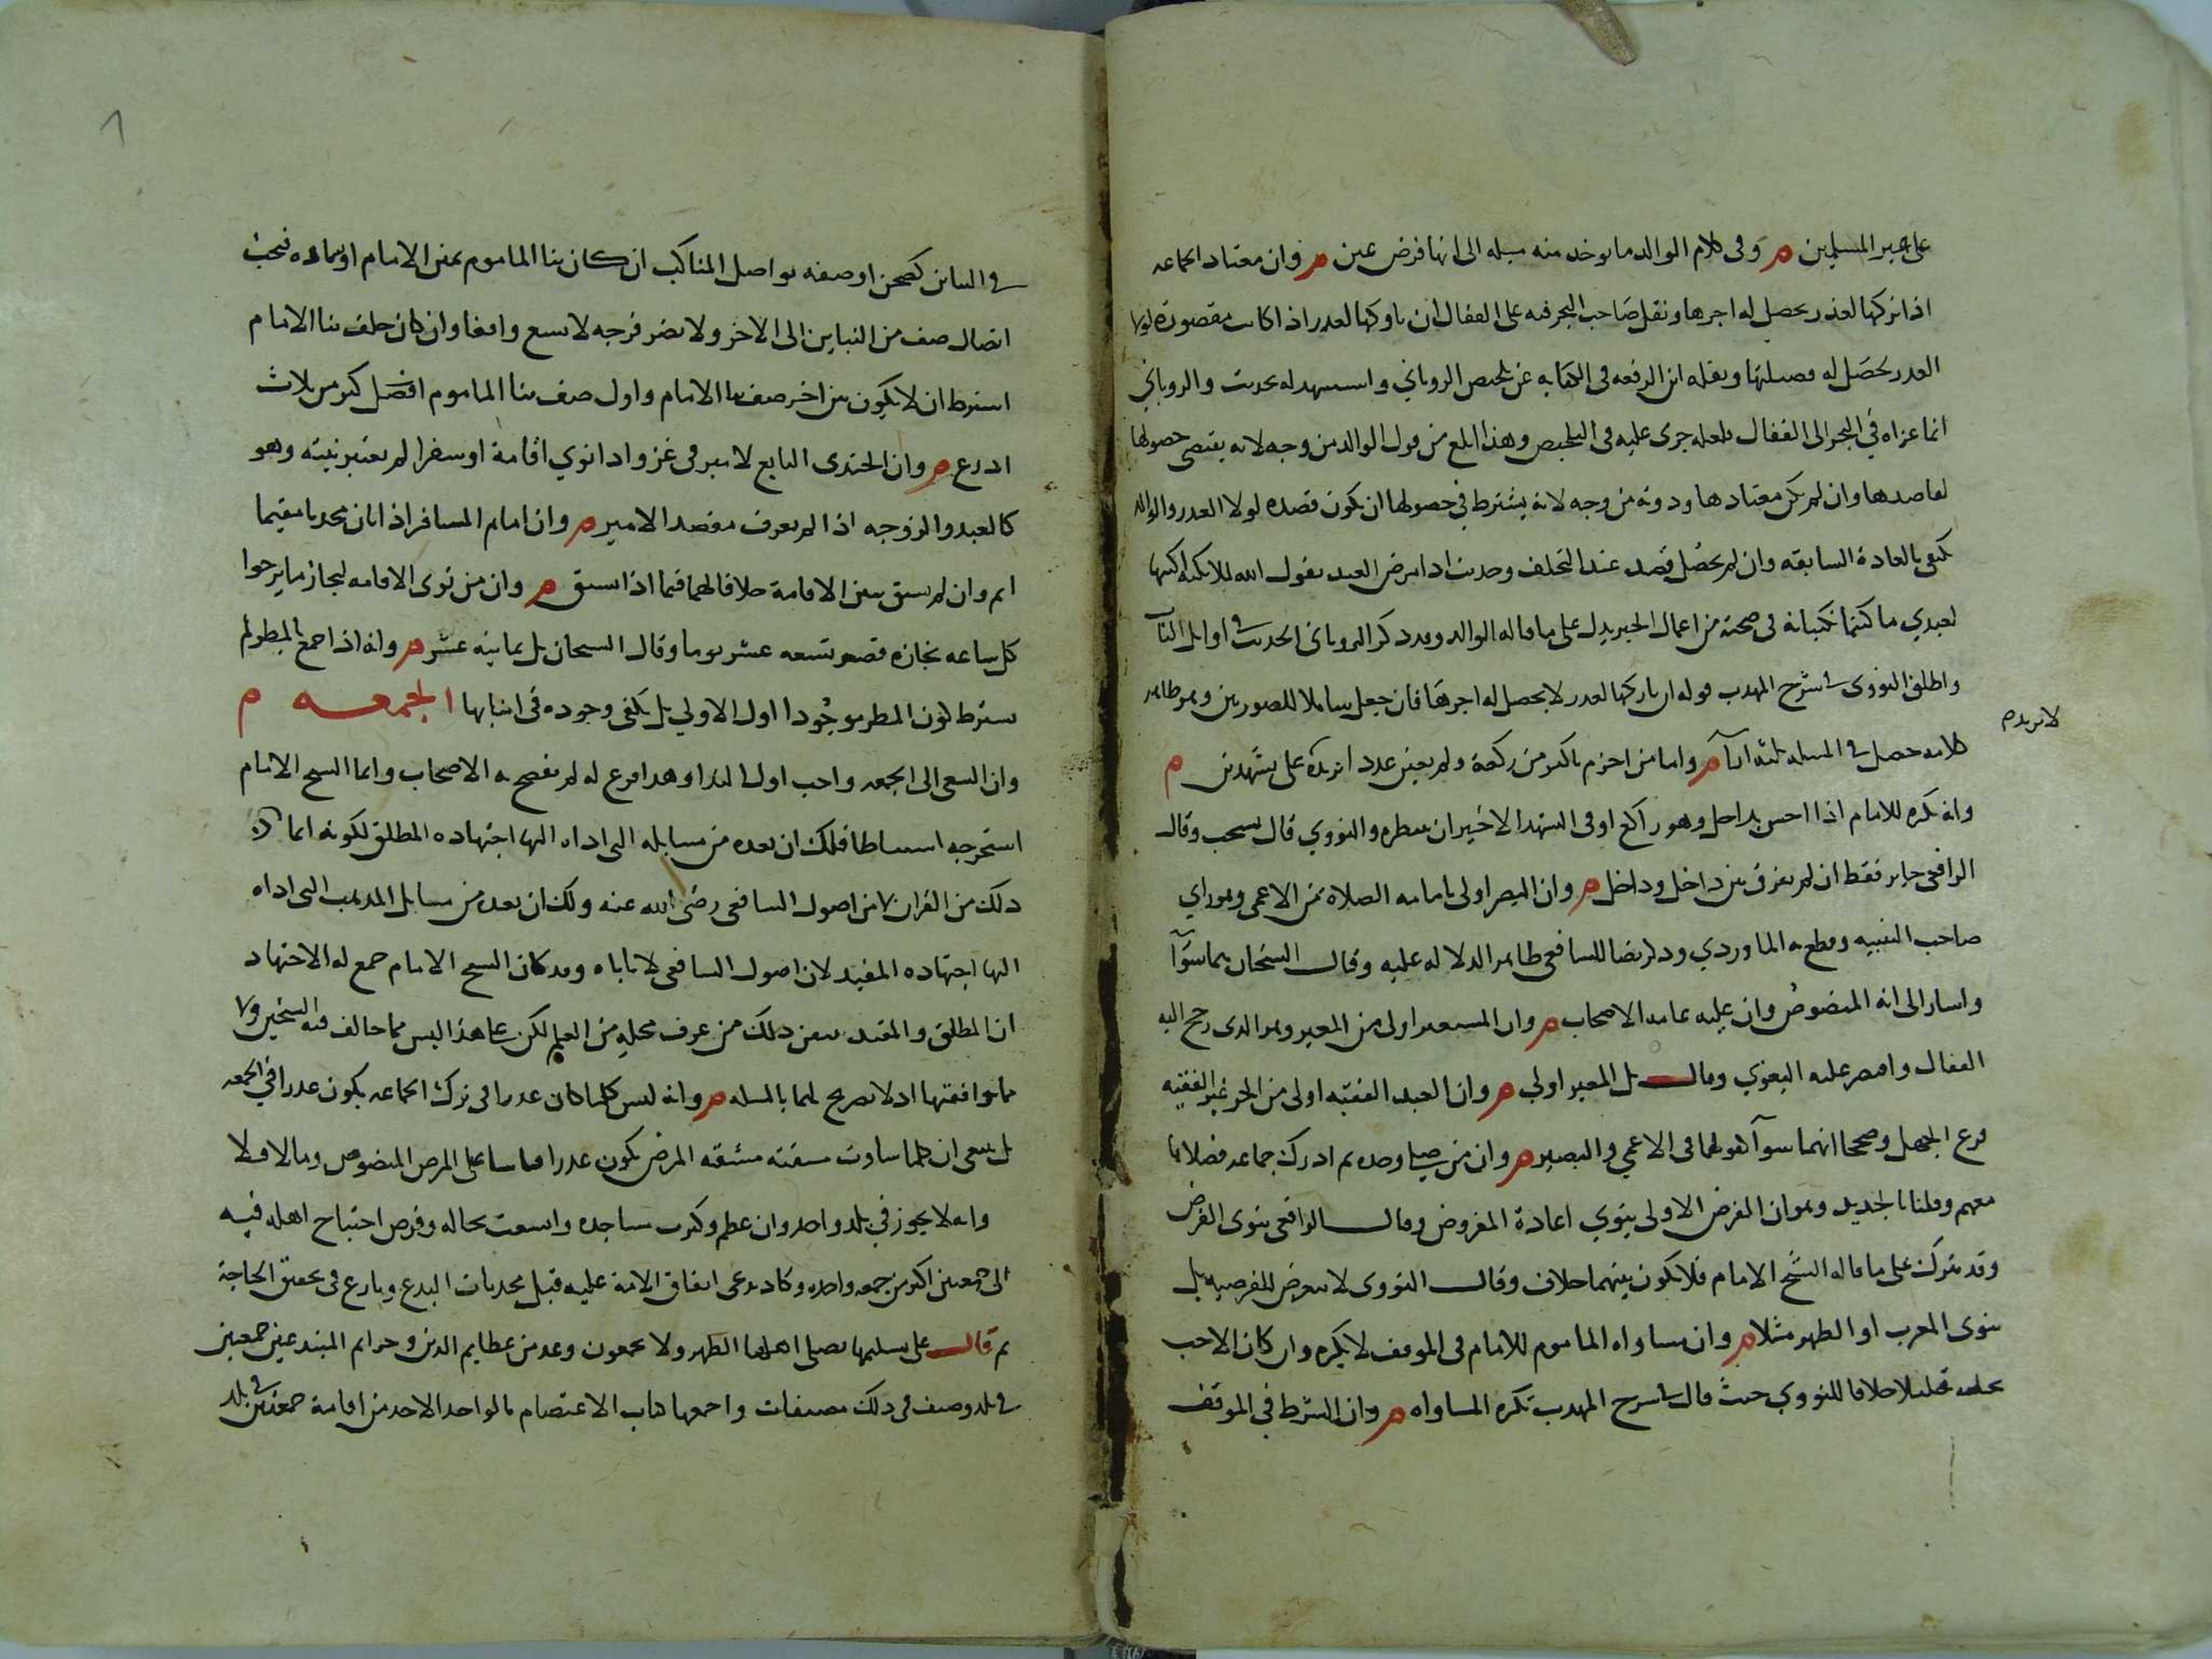 على الميسر المسلمين م وفى كلام الوالد ما يوخذ منه ميله الى انها فرض عين م وان معتاد الجماعه
اذا تركها لعذر يحصل له اجرها ونقل صاحب البحر فيه على القفال ان تاركها لعذر اذا كانت مقصودة لولا
العذر يحصل له فضيلتها ونقله ابن الرفعه فى الكفايه عن تلخيص الروياني واستشهد له بحديث والروياني
انما عزاه في البحر الى القفال فلعله جرى عليه فى التلخيص وهذا ابلغ من قول الوالد من وجه لانه يقتضى حصولها
لقاصدها وان لم يكن معتادها ودونه من وجه لانه يشترط في حصولها ان يكون قصده لولا العذر والوالد
يكتفى بالعادة السابقه وان لم يحصل قصد عند التخلف وحديث اذا مرض العبد يقول الله للملايكه اكتبا
لعبدي ما كنتما تكتبانه فى صحته من اعمال الخير يدل على ما قاله الوالد وقد ذكر الروياني الحديث فى اوايل الباب
واطلق النووى فى شرح المهذب قوله ان تاركها لعذر لا يحصل له اجرها فان جعل شاملا للصورتين وهو ظاهر
كلامه حصل فى المسله ثلثه ارآ م واما من احرم باكثر من ركعة ولم يعين عدد ا يزيده على تشهدين م
لا يزيد م
وانه يكره للامام اذا احس بداخل وهو راكع او فى التشهد الاخير ان ينتظره والنووي قال يستحب وقال
الرافعى جايز فقط ان لم يفرق بين داخل وداخل م وان البصير اولى بامامه الصلاة من الاعمى وهو راي
صاحب التنبيه وقطع به الماوردي وذكر نصا للشافعى ظاهر الدلاله عليه وقال الشيخان هما سوآ
واشار الى انه المنصوص وان عليه عامه الاصحاب م وان المستعير اولى من المعير وهو الذى رجع اليه
القفال واقتصر عليه البغوي وقال بل المعير اولى م وان العبد الفقيه اولى من الحر غير الفقيه
فرع الجهل وصححا انهما سوآ كقولهما فى الاعمى والبصير م وان من صلى وحده ثم ادرك جماعه فصلاها
معهم وقلنا بالجديد وهو ان الفرض الاولى ينوي اعادة المفروض وقال الرافعى ينوى الفرض
وقد ينزل على ما قاله الشيخ الامام فلا يكون بينهما خلاف وقال النووى لا يتعرض للفرضيه بل
ينوى المغرب او الظهر مثلا م وان مساواه الماموم للامام فى الموقف لا يكره وان كان الاحب
تخلفه قليلا خلافا للنووي حيث قال فى شرح المهذب تكره المساواه م وان الشرط في الموقف
فى البناين كصحن او صفه تواصل المناكب ان كان بنا الماموم يمين الامام او يساره فيجب
اتصال صف من البناين الى الاخر ولا تضر فرجه لا تسع واقفا وان كان خلف بنا الامام
اشترط ان لا يكون بين اخر صف بنا الامام واول صف بنا الماموم اكثر من ثلاث
اذرع م وان الجندى التابع لامير فى غزو اذا نوي اقامة او سفرا لم تعتبر نيته وهو
كالعبد والزوجه اذا لم يعرف مقصد الامير م وان امام المسافر اذا بان محدثا مقيما
اتم وان لم يسبق تبين الاقامة خلافا لهما فيما اذا سبق م وان من نوى الاقامه لنجاز ما يرجوا
كل ساعه نجازه قصر تسعه عشر يوما وقال الشيخان بل ثمانيه عشر م وانه اذا جمع بالمطر لم
يشترط كون المطر موجودا اول الاولي بل يكفى وجوده فى اثنايها الجمعه م
وان السعى الى الجمعه واجب اول الندا وهذا فرع له لم يفصح به الاصحاب وانما الشيخ الامام
استخرجه استنباطا فلك ان تعده من مسايله التى اداه اليها اجتهاده المطلق لكونه انما اخذ
ذلك من القران لا من اصول الشافعى رضى الله عنه ولك ان تعده من مسايل المذهب التى اداه
اليها اجتهاده المقيد لان اصول الشافعى لا تاباه وقد كان الشيخ الامام جمع له الاجتهاد
ان المطلق والمقيد يتقن ذلك من عرف محله من العلم لكن على هذا ليس مما خالف فيه الشيخين ولا
مما وافقهما اذ لا تصريح لهما بالمسله م وانه ليس كلما كان عذرا فى ترك الجماعه يكون عذرا في الجمعه
بل ينبغى ان كلما ساوت مشقته مشقه المرض يكون عذرا قياسا على المرض المنصوص وما لا فلا
وانه لا يجوز في بلد واحد وان عظم وكثرت مساجده واتسعت محاله وفرض احتياج اهله فيه
الى جمعتين اكثر من جمعه واحده وكاد يدعى اتفاق الامة عليه قبل محدثات البدع ونازع فى تحقق الحاجة
ثم قال على تسليمها يصلى اهلها الظهر ولا يجمعون وعد من عظايم الدين وجرايم المبتدعين جمعتين
فى بلد وصنف فى ذلك مصنفات واجمعها كتاب الاعتصام بالواحد الاحد من اقامة جمعتين فى بلد